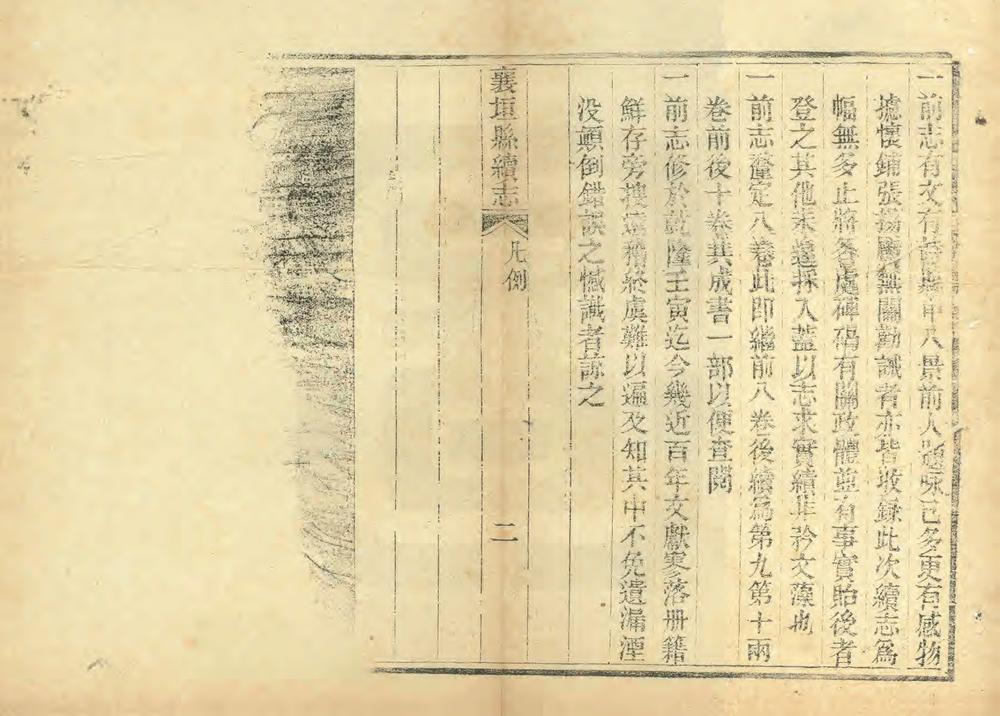 一前志有文有詩斯甲八景前人題咏已多更有感物
攄懷鋪張揚厲無關勸誡者亦皆收錄此次續志爲
幅無多止將各處碑碣有關政體並有事實貽後者
登之其他未遑採入蓋以志求實績非矜文藻也
一前志釐定八卷此即繼前八卷後續爲第九第十兩
卷前後十卷共成書一部以便查閱
一前志修於乾隆壬寅迄今幾近百年文獻寥落册籍
鮮存旁搜遠稽終虞難以遍及知其中不免遺漏湮
没顛倒錯誤之憾識者諒之
襄垣縣續志
凡例
二